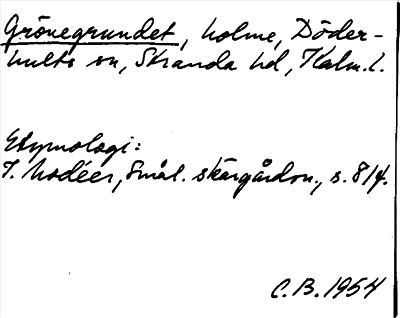 Grönegrundet, holme, Döder-
hults sn, Stranda hd, Kalm. l.
Etymologi:
I. Modéer, Smål. skärgårdsn., s. 84.
C.B. 1954